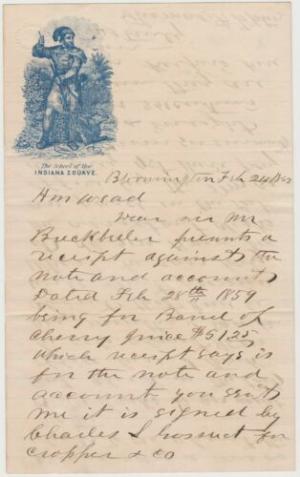 The School of the
INDIANA ZOUAVE.
Bloomington Feb 24
H M Wead
Dear sir Mr
presents a
receipt against the
note and accounts
Dated Feb 28th 1859
being for Barrel of
Cherry Juice $51,25
which receipt says is
for the note and
account you sent
me it is signed by
Charles S for
Cropper & co